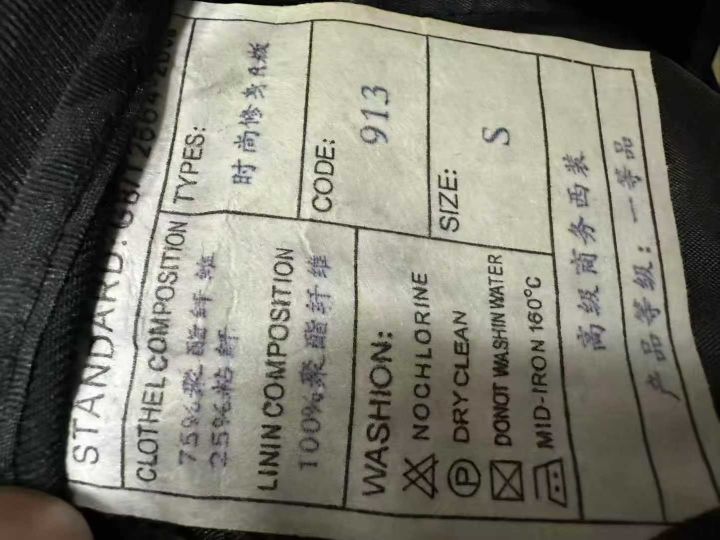 STANDARD: GB/T2664-200
CLOTHEL COMPOSITION
75%聚酯纤维
25%粘纤
LININ COMPOSITION
100%聚酯纤维
TYPES:
时尚修身A版
CODE:
913
SIZE:
S
WASHION:
NOCHLORINE
DRY CLEAN
DONOT WASHIN WATER
MID-IRON 160°C
高级商务西装
产品等级：一等品